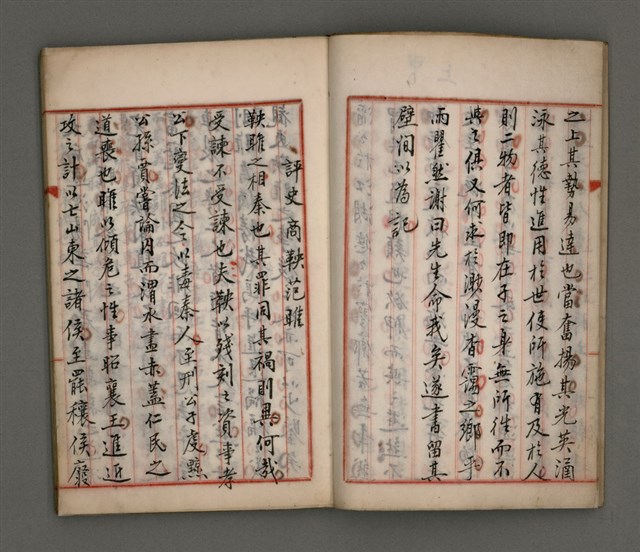 之上其勢易遠也當奮揚其光英涵
泳其德性進用於世使所施有及於人
則二物者皆即在子之身無所往而不
與之俱又何求於溆漫有靄之鄉乎
雨瞿然謝曰先生命我矣遂書留其
壁間以為記
評史商鞅范雎
鞅雎之相秦也其罪同其禍則異何哉
受諫不受諫也夫鞅以殘刻之資事孝
公下變法之令以毒秦人至刑公子虔黥
公孫賈嘗論囚而渭水盡赤蓋仁民之
道喪也雎以傾危之性事昭襄王進近
攻之計以亡山東之諸侯至罷穰侯廢